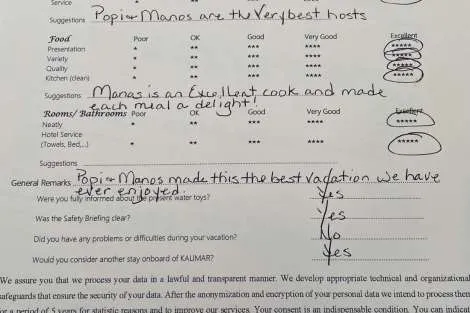 Service
Suggestions Popi & Manos are the Very best hosts
Food Poor OK Good Very Good Excellent
Presentation * ** *** **** *****
Variety * ** *** **** *****
Quality * ** *** **** *****
Kitchen (clean) * ** *** **** *****
Suggestions Manos is an Excellent cook and made
each meal a delight!
Rooms/ Bathrooms Poor OK Good Very Good Excellent
Neatly * ** *** **** *****
Hotel Service
(Towels, Bed,...) * ** *** **** *****
Suggestions
General Remarks Popi & Manos made this the best vacation we have
ever enjoyed.
Were you fully informed about the present water toys? Yes
Was the Safety Briefing clear? Yes
Did you have any problems or difficulties during your vacation? No
Would you consider another stay onboard of KALIMAR? Yes
We assure you that we process your data in a lawful and transparent manner. We develop appropriate technical and organizational
safeguards that ensure the security of your data. After the anonymization and encryption of your personal data we intend to process them
for a period of 5 years for statistic reasons and to improve our services. Your consent is an indispensable condition. You can indicate